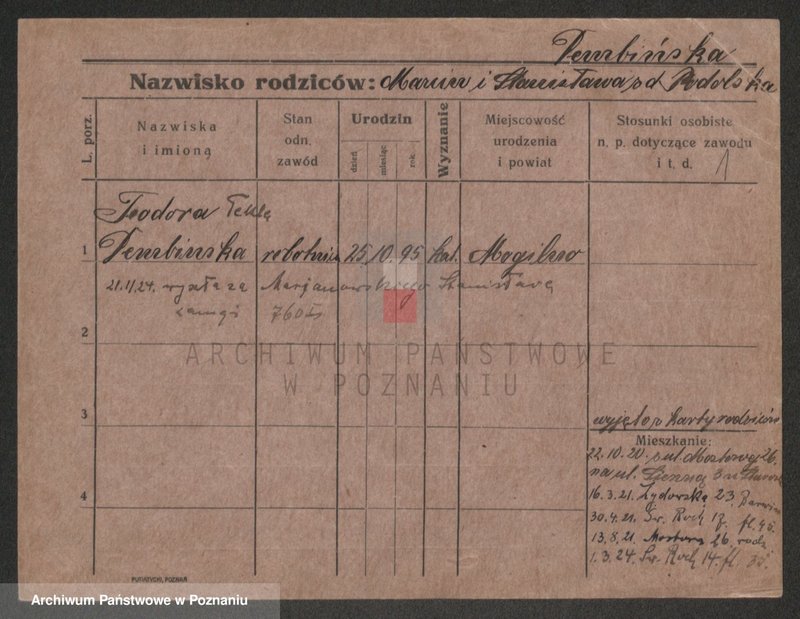 Pembińska
Nazwisko rodziców: Marcin i Stanisława z d. Podolska
L. porz.
Nazwiska
i imioną
Stan
odn.
zawód
Urodzin
dzień
miesiąc
rok.
Wyznanie
Miejscowość
urodzenia
i powiat
Stosunki osobiste
n. p. dotyczące zawodu
i t. d.
1
Teodora Tekla
1 Pembińska robotnica 25 10. 95 kat. Mogilno
21.11.24. wyszła za Marjanowskiego Stanisława
760
2
ARCHIWUM PAŃSTWOWE
W POZNANIU
3
wyjęto z karty rodziców
Mieszkanie:
22.10.20. z ul. Mostowej 26.
na ul.
4
16.3.21. Żydowska 23
30.4.21. Św. Roch 17. fl. 45
13.8.21 Mostowa 26
1.3.24. Św. Roch 14. fl.
PUNIATYCKI, POZNAŃ
Archiwum Państwowe w Poznaniu